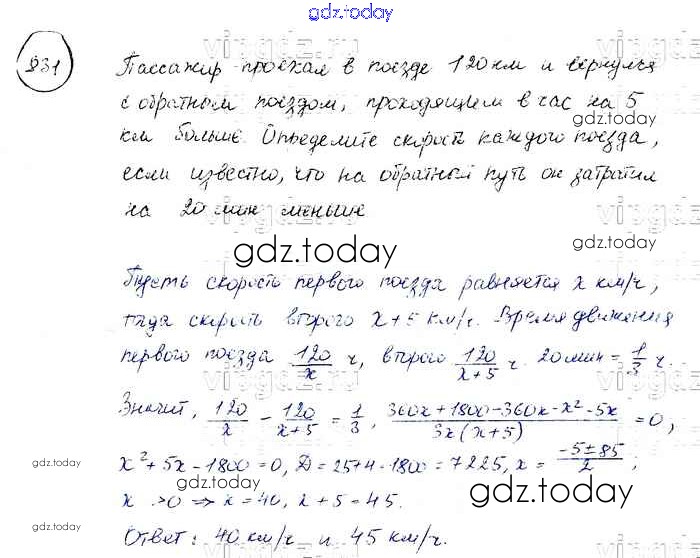 gdz.today
931
Пассажир проехал в поезде 120 км и вернулся
с обратным поездом, проходящем в час на 5
км больше. Определите скорость каждого поезда,
если известно, что на обратный путь он затратил
на 20 мин меньше
gdz.today
Пусть скорость первого поезда равняется x км/ч,
тогда скорость второго x+5 км/ч. Время движения
первого поезда 120/x ч, второго 120/(x+5) ч. 20 мин = 1/3 ч.
Значит, 120/x - 120/(x+5) = 1/3, (360x+1800-360x-x²-5x)/(3x(x+5)) = 0,
gdz.today x²+5x-1800=0, D=25+4·1800=7225, x = (-5±85)/2;
x >0 ⇒ x=40, x+5=45. gdz.today
gdz.today Ответ: 40 км/ч и 45 км/ч.